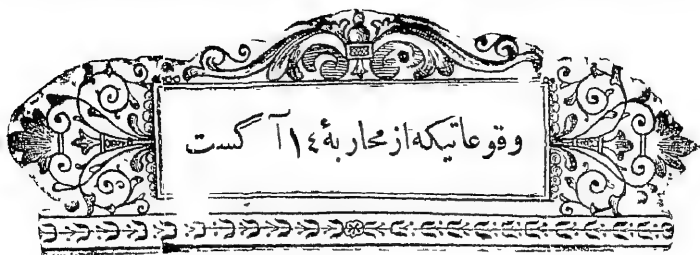 وقوعاتیکه از محاربهٔ ۱٤ آگست